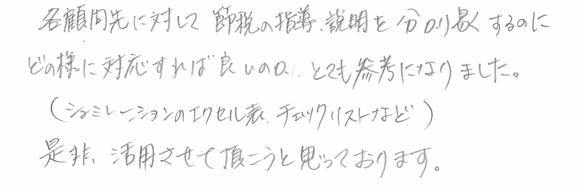 各顧問先に対して節税の指導、説明を分かり易くするのに
どの様に対応すれば良いのか… とても参考になりました。
(シュミレーションのエクセル表、チェックリストなど)
是非、活用させて頂こうと思っております。